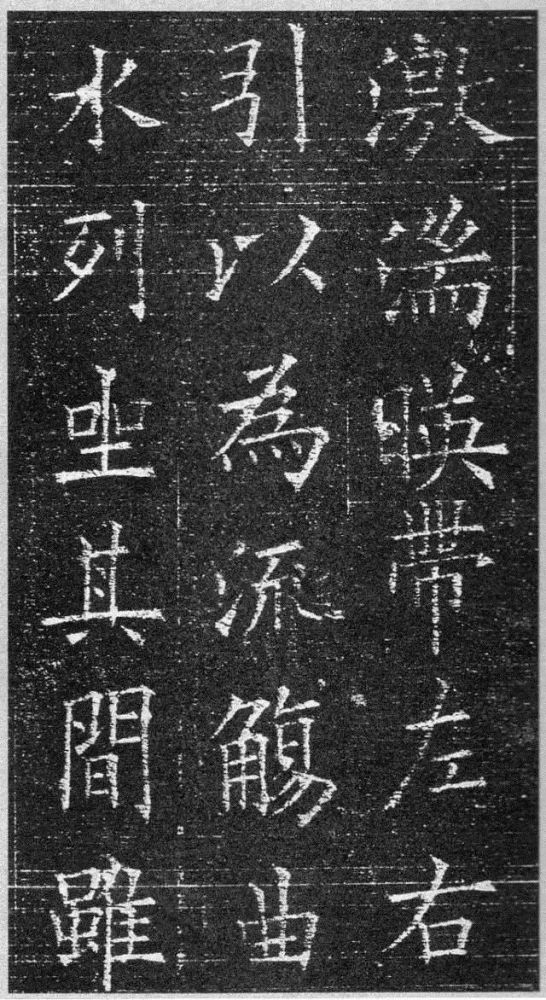 激湍暎帶左右
引以為流觴曲
水列坐其間雖